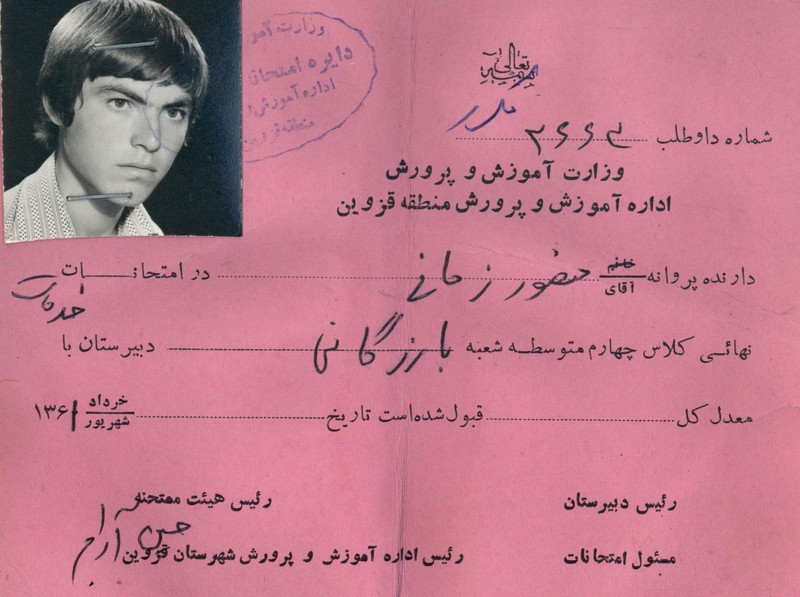 بسمه تعالی
شماره داوطلب ۲۶۶۲
وزارت آموزش و پرورش
اداره آموزش و پرورش منطقه قزوین
دارنده پروانه خانم آقای منصور زمانی در امتحانات
نهائی کلاس چهارم متوسطه شعبه بازرگانی دبیرستان با
خدمات
معدل کل قبول شده است تاریخ خرداد شهریور ۱۳۶۱
رئیس دبیرستان رئیس هیئت ممتحنه
مسئول امتحانات رئیس اداره آموزش و پرورش شهرستان قزوین
دایره امتحانات
اداره آموزش
منطقه قزوین